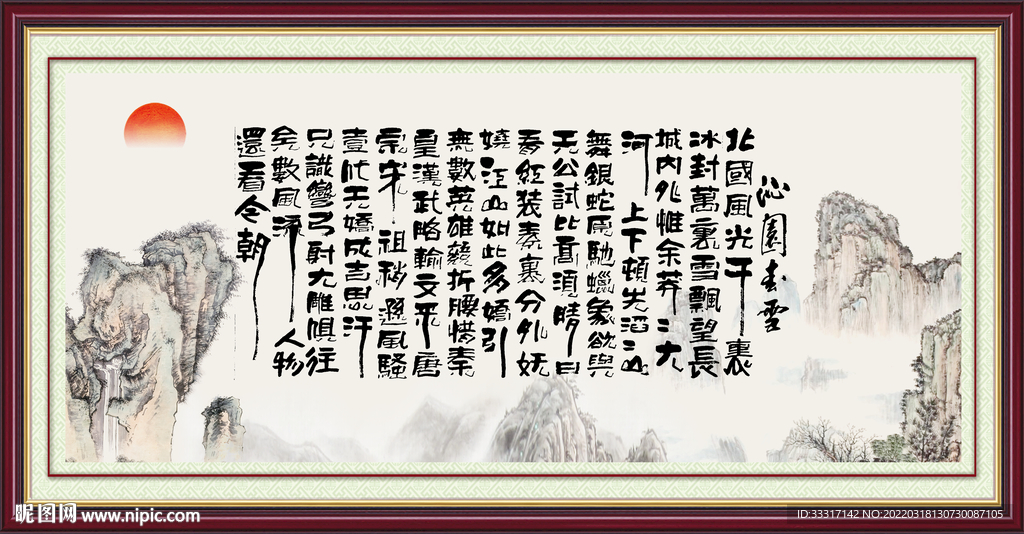 沁園春雪
北國風光千裏
冰封萬裏雪飄望長
城內外惟余莽〻大
河上下頓失滔〻山
舞銀蛇原馳蠟象欲與
天公試比高須晴日
看紅裝素裹分外妖
嬈江山如此多嬌引
無數英雄競折腰惜秦
皇漢武略輸文采唐
宗宋祖稍遜風騷
壹代天嬌成吉思汗
只識彎弓射大雕俱往
矣數風流人物
還看今朝
昵图网 www.nipic.com
ID:33317142 NO:20220318130730087105